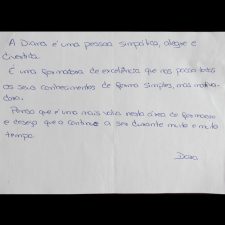 A Diana é uma pessoa simpática, alegre e
divertida.
É uma formadora de excelência que nos passa todos
os seus conhecimentos de forma simples, mas motiva-
dora.
Penso que é uma mais valia nesta área de formadora
e desejo que a continue a ser durante muito e muito
tempo.